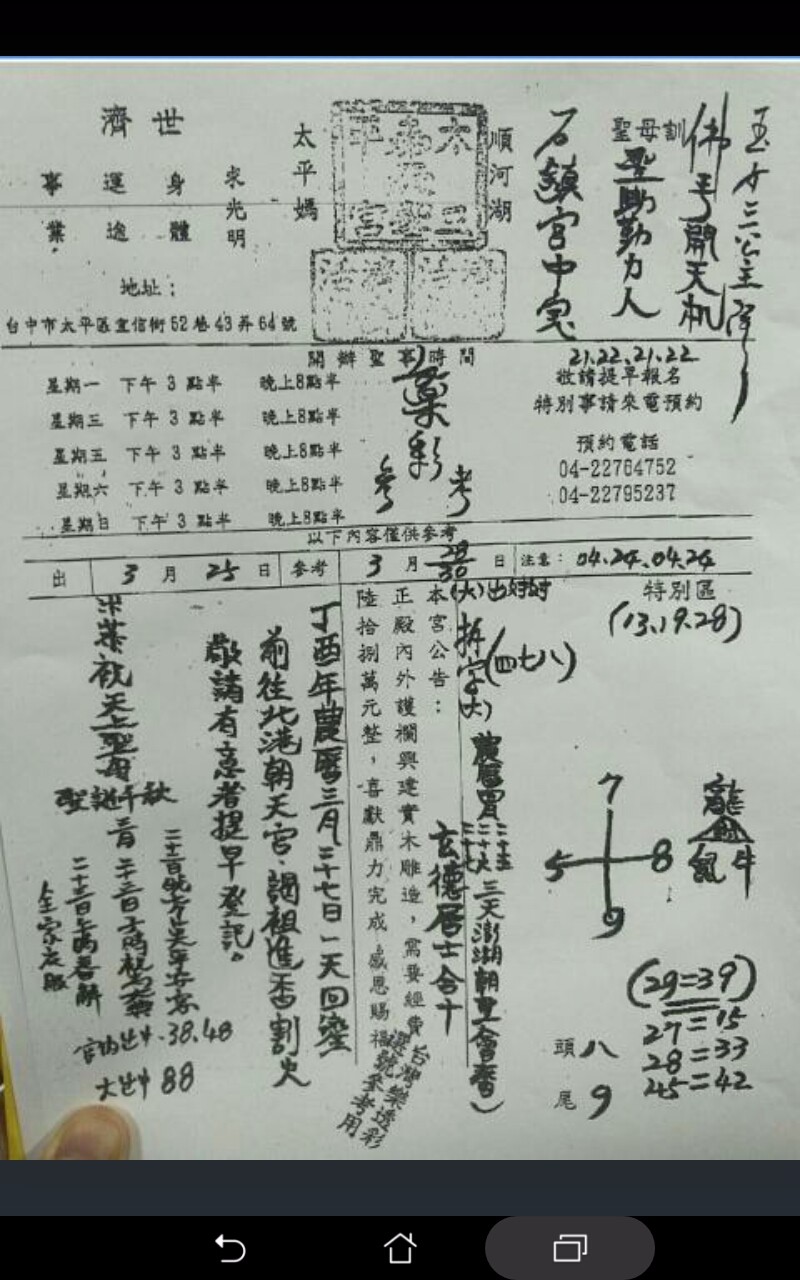 玉十三公主降
佛手開天机
聖母訓
聖助勤力人
石鎮宮中鬼
順河湖
太平媽
濟世
求光明
身體
運途
事業
地址：
台中市太平區宜信街52巷43弄64號
開辦聖事時間
星期一 下午3點半 晚上8點半
星期三 下午3點半 晚上8點半
星期五 下午3點半 晚上8點半
星期六 下午3點半 晚上8點半
星期日 下午3點半 晚上8點半
彩
參考
21.22.21.22
敬請提早報名
特別事請來電預約
預約電話
04-22764752
04-22795237
以下內容僅供參考
出 3月25日 參考 3月28 30日 注意：04.24.04.24
特別區
(13.19.28)
拆字(四七八)
(大)
本宮公告：
正殿內外護欄興建實木雕造，需要經費
陸拾捌萬元整，喜獻鼎力完成，感恩賜福
玄德居士合十
三天澎湖朝聖會香)
丁酉年農曆三月二十七日一天回鑾
前往北港朝天宮‧謁祖進香割火
敬請有意者提早登記。
恭祝天上聖母
聖誕千秋
7
5 8
9
龍
鼠 牛
(29=39)
27=15
28=33
45=42
頭 八
尾 9
38.48
88
台灣樂透彩
選號參考用